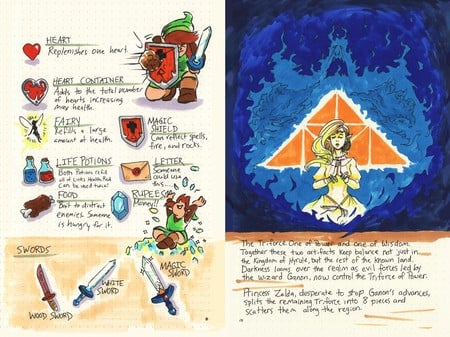 HEART
Replenishes one heart.
HEART CONTAINER
Adds to the total number
of hearts increasing
max health.
FAIRY
Refills a large
amount of health.
MAGIC
SHIELD
Can reflect spells,
fire, and rocks.
LIFE POTIONS
Both Potions refill
all of Links Health. Red
Can be used twice!
LETTER
Someone
could use
this...
FOOD
Bait to distract
enemies. Someone
is hungry for it.
RUPEES
Money!!
SWORDS
WOOD SWORD
WHITE
SWORD
MAGIC
SWORD
The Triforce. One of Power and one of Wisdom.
Together these two artifacts keep balance not just in
the Kingdom of Hyrule, but the rest of the known land.
Darkness looms over the realm as evil forces led by
the wizard Ganon, now control the Triforce of Power.
Princess Zelda, desperate to stop Ganon's advances,
splits the remaining Triforce into 8 pieces and
scatters them along the region.